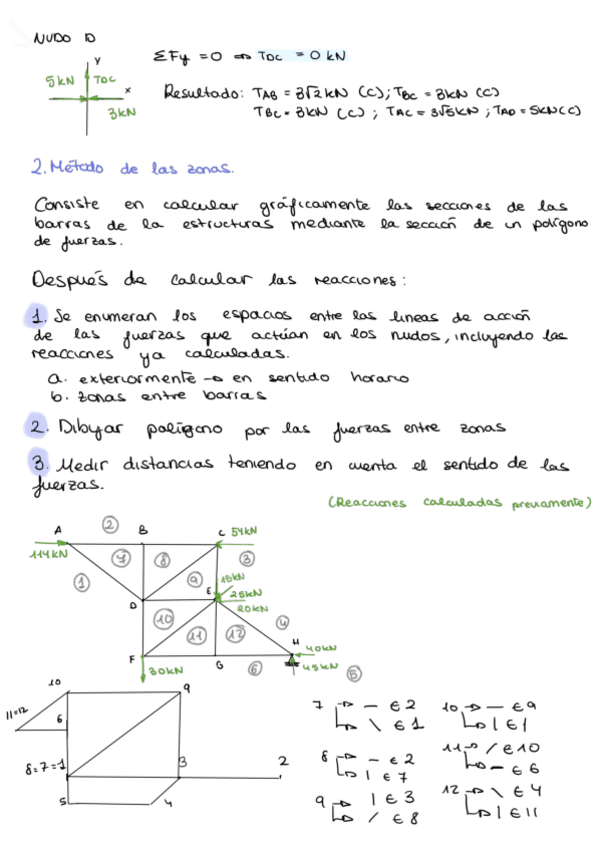 NUDO D
y
ΣFy = 0 ⇒ TDC = 0 kN
5 kN TDC
x
3kN
Resultado: TAB = 3√2 kN (C); TBC = 3kN (C)
TBC = 3kN (C) ; TAC = 3√5kN ; TAD = 5kN(C)
2. Método de las zonas.
Consiste en calcular gráficamente las secciones de las
barras de la estructuras mediante la sección de un polígono
de fuerzas.
Después de calcular las reacciones:
1. Se enumeran los espacios entre las líneas de acción
de las fuerzas que actúan en los nudos, incluyendo las
reacciones ya calculadas.
a. exteriormente → en sentido horario
b. zonas entre barras
2. Dibujar polígono por las fuerzas entre zonas
3. Medir distancias teniendo en cuenta el sentido de las
fuerzas.
(Reacciones calculadas previamente)
A 2 B C 54kN
114kN 7 8 3
1 9 15kN
E 25kN
D 20kN
10 4
11 12 H
F 40kN
G 6 45kN 5
30kN
10 9
11=12
6
8=7=1 3 2
5 4
7 → — ∈ 2
→ \ ∈ 1
8 → — ∈ 2
→ | ∈ 7
9 → | ∈ 3
→ / ∈ 8
10 → — ∈ 9
→ | ∈ 1
11 → / ∈ 10
→ — ∈ 6
12 → \ ∈ 4
→ | ∈ 11